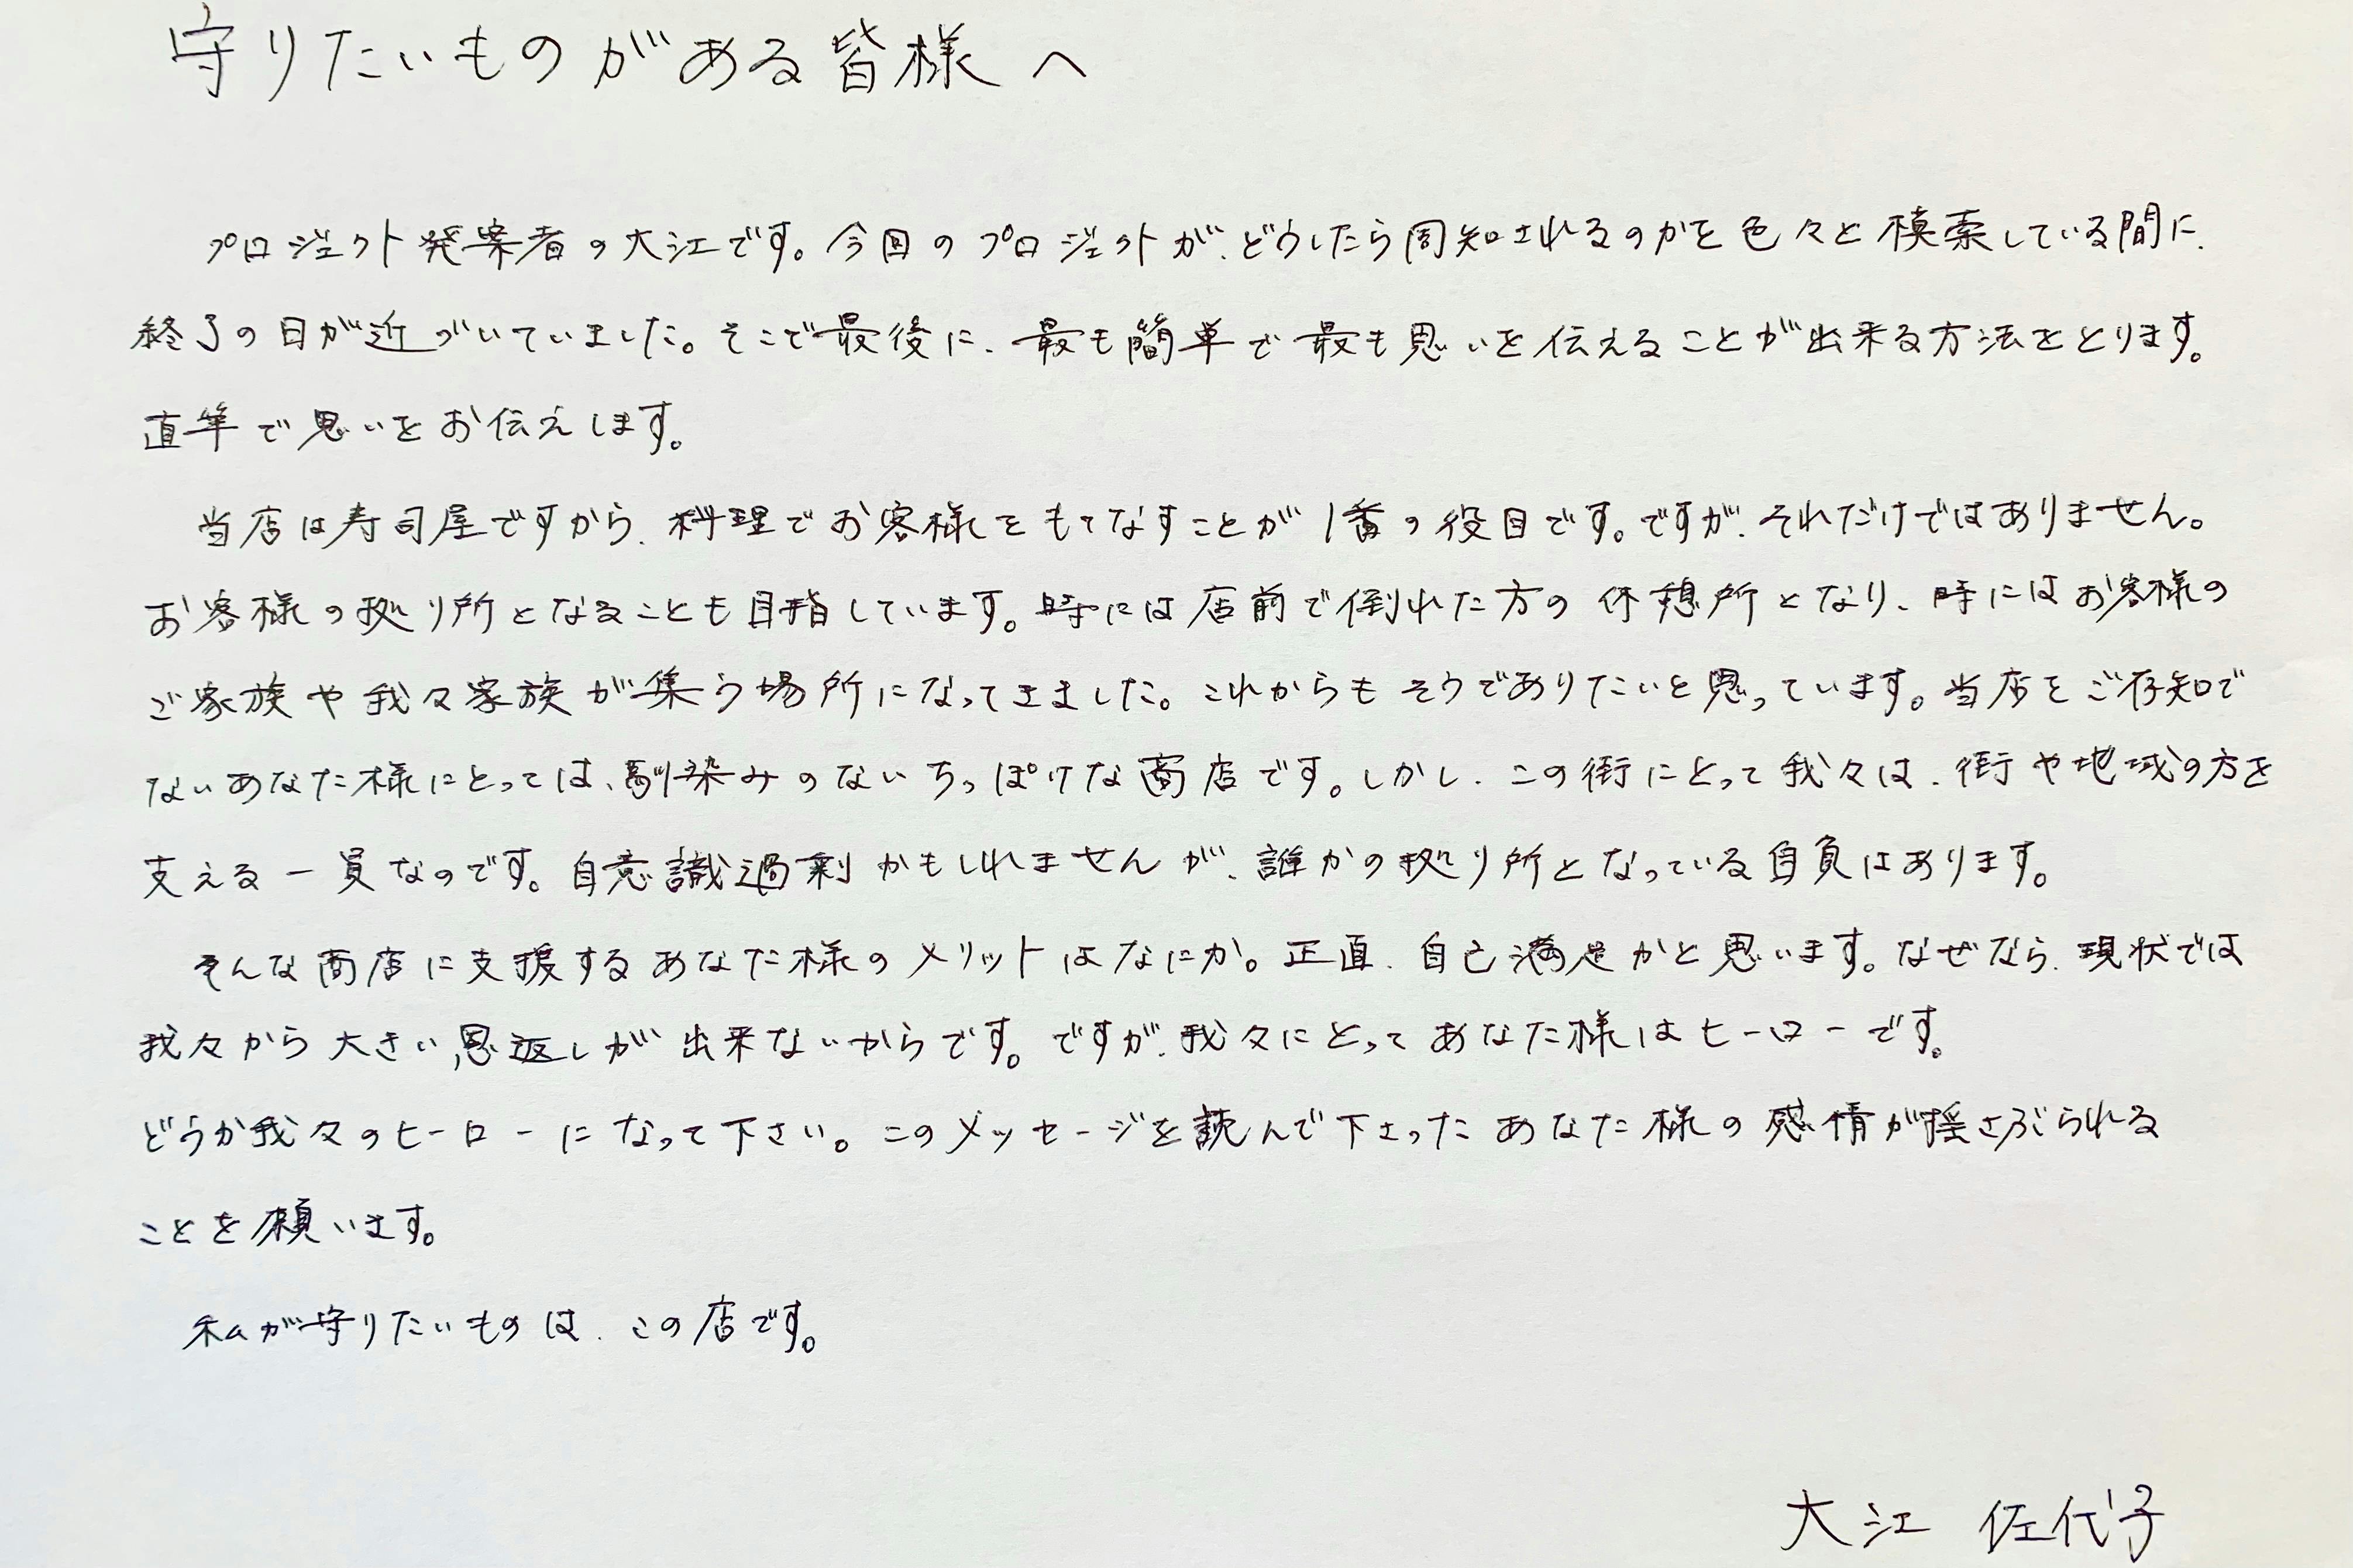 守りたいものがある皆様へ
プロジェクト発案者の大江です。今回のプロジェクトが、どうしたら周知されるのかを色々と模索している間に、
終了の日が近づいていました。そこで最後に、最も簡単で最も思いを伝えることが出来る方法をとります。
直筆で思いをお伝えします。
当店は寿司屋ですから、料理でお客様をもてなすことが1番の役目です。ですが、それだけではありません。
お客様の拠り所となることも目指しています。時には店前で倒れた方の休憩所となり、時にはお客様の
ご家族や我々家族が集う場所になってきました。これからもそうでありたいと思っています。当店をご存知で
ないあなた様にとっては、馴染みのないちっぽけな商店です。しかし、この街にとって我々は、街や地域の方を
支える一員なのです。自意識過剰かもしれませんが、誰かの拠り所となっている自負はあります。
そんな商店に支援するあなた様のメリットはなにか。正直、自己満足かと思います。なぜなら、現状では
我々から大きい恩返しが出来ないからです。ですが、我々にとってあなた様はヒーローです。
どうか我々のヒーローになって下さい。このメッセージを読んで下さったあなた様の感情が揺さぶられる
ことを願います。
私が守りたいものは、この店です。
大江 佐代子